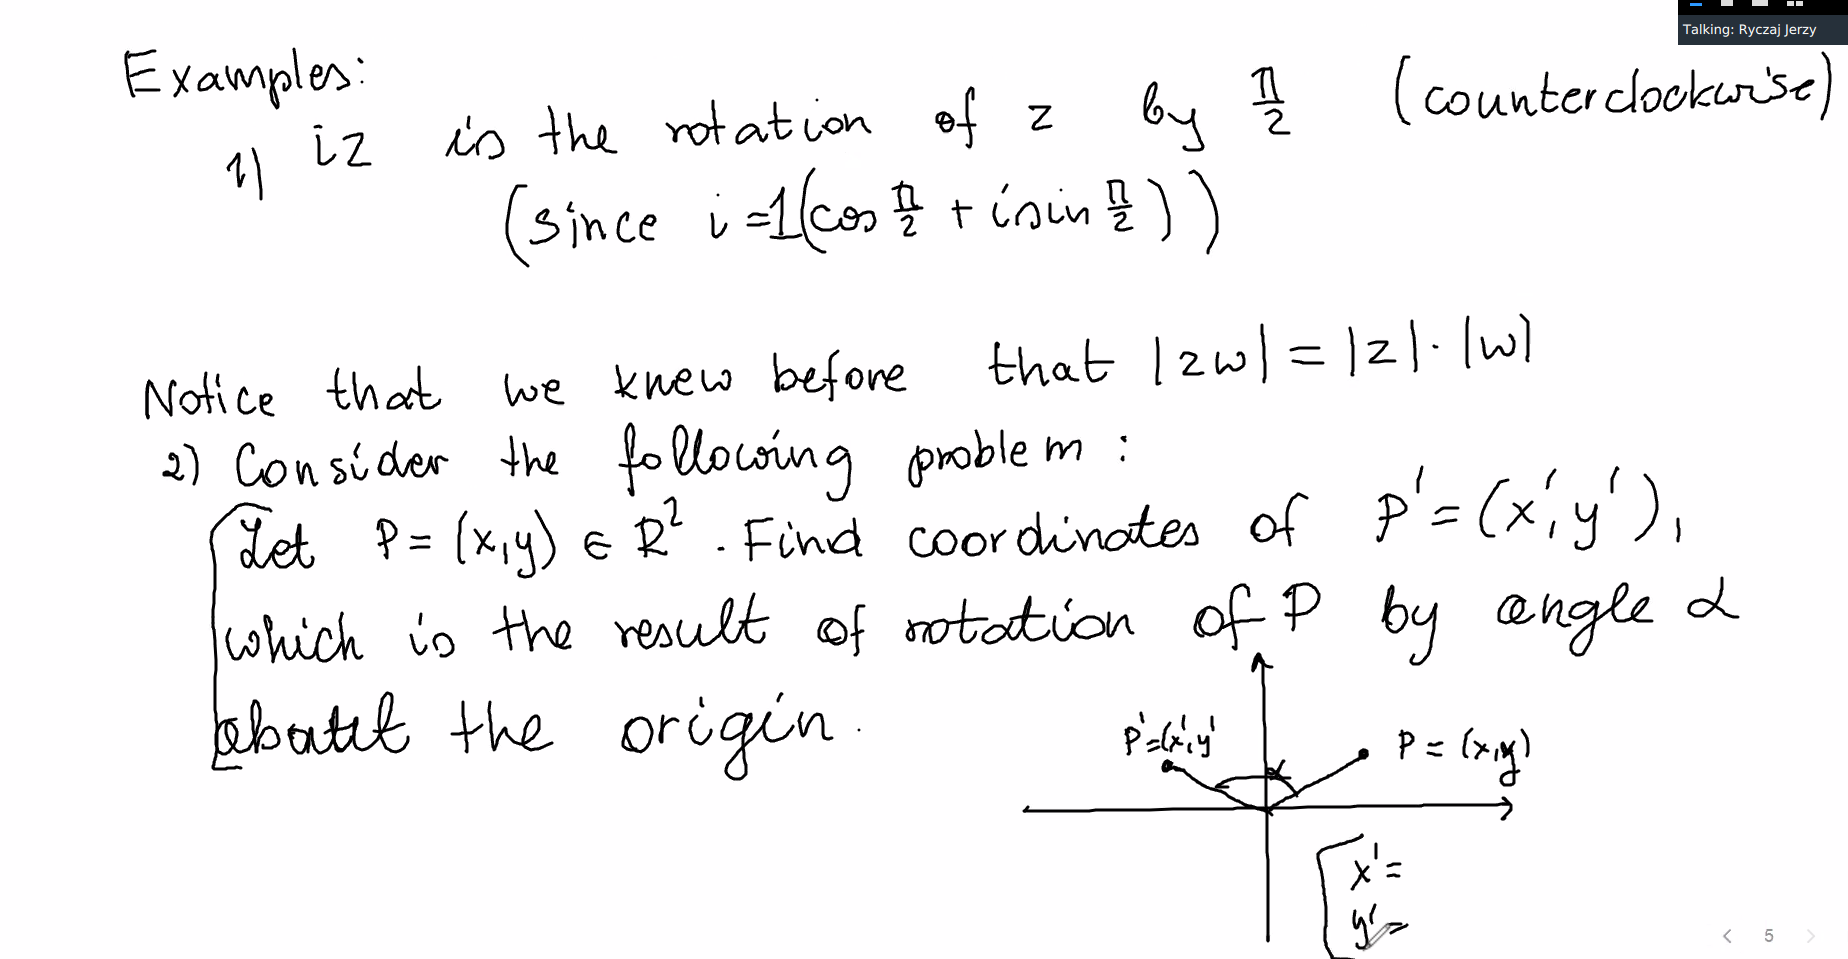 Talking: Ryczaj Jerzy
Examples:
1) iz is the rotation of z by π/2 (counterclockwise)
(since i=1(cos π/2 + i sin π/2))
Notice that we knew before that |zw| = |z|·|w|
2) Consider the following problem:
Let P = (x,y) ∈ R². Find coordinates of P' = (x',y'),
which is the result of rotation of P by angle α
about the origin.
P'=(x',y'
α
P = (x,y)
x'=
y'=
5